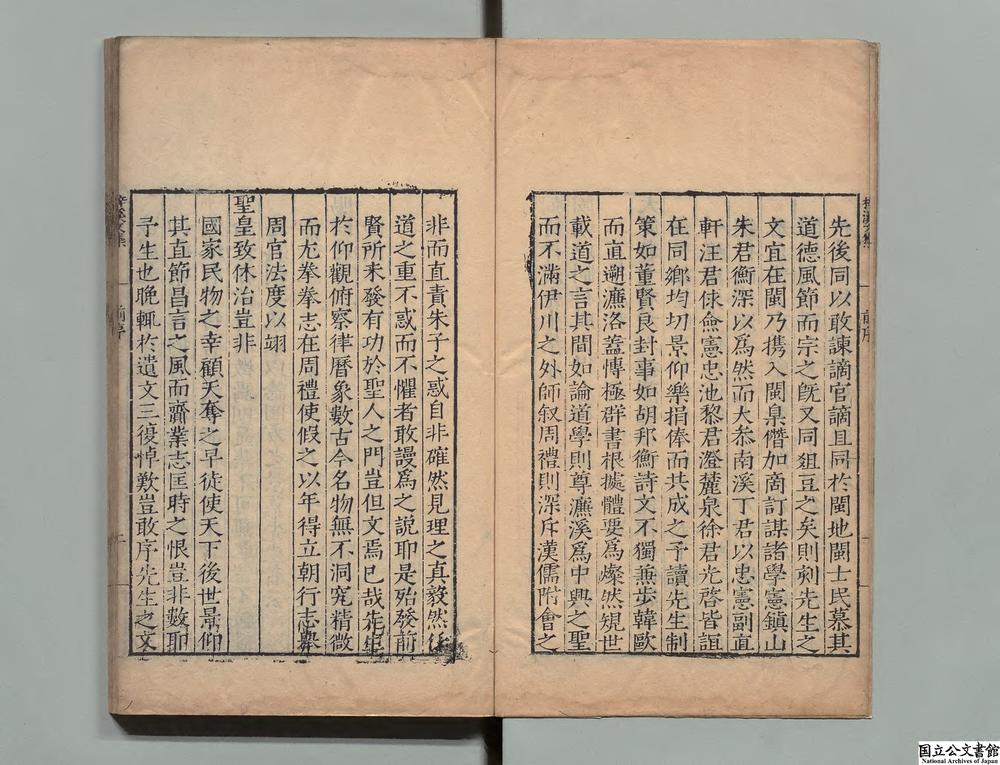 先後同以敢諫謫官謫且同於閩地閩士民慕其
道德風節而宗之旣又同俎豆之矣則刻先生之
文宜在閩乃携入閩臬僭加啇訂謀諸學憲鎮山
朱君衡深以爲然而大叅南溪丁君以忠憲副直
軒汪君倈僉憲忠池黎君澄麓泉徐君光啓皆誼
在同鄉均切景仰樂捐俸而共成之予讀先生制
策如董賢良封事如胡邦衡詩文不獨兼歩韓歐
而直遡濂洛蓋博極群書根據體要爲燦然䂓世
載道之言其間如論道學則尊濂溪爲中興之聖
而不滿伊川之外師叙周禮則深斥漢儒附會之
非而直責朱子之惑自非確然見理之真毅然後
道之重不惑而不懼者敢謾爲之説耶是殆發前
賢所未發有功於聖人之門豈但文焉已哉先生
於仰觀俯察律曆象數古今名物無不洞究精微
而尢拳拳志在周禮使假之以年得立朝行志舉
周官法度以翊
聖皇致休治豈非
國家民物之幸顧天奪之早徒使天下後世景仰
其直節昌言之風而齎業志匡時之恨豈非數耶
予生也晩輒於遺文三復悼歎豈敢序先生之文
前序
前序
国立公文書館
National Archives of Japan